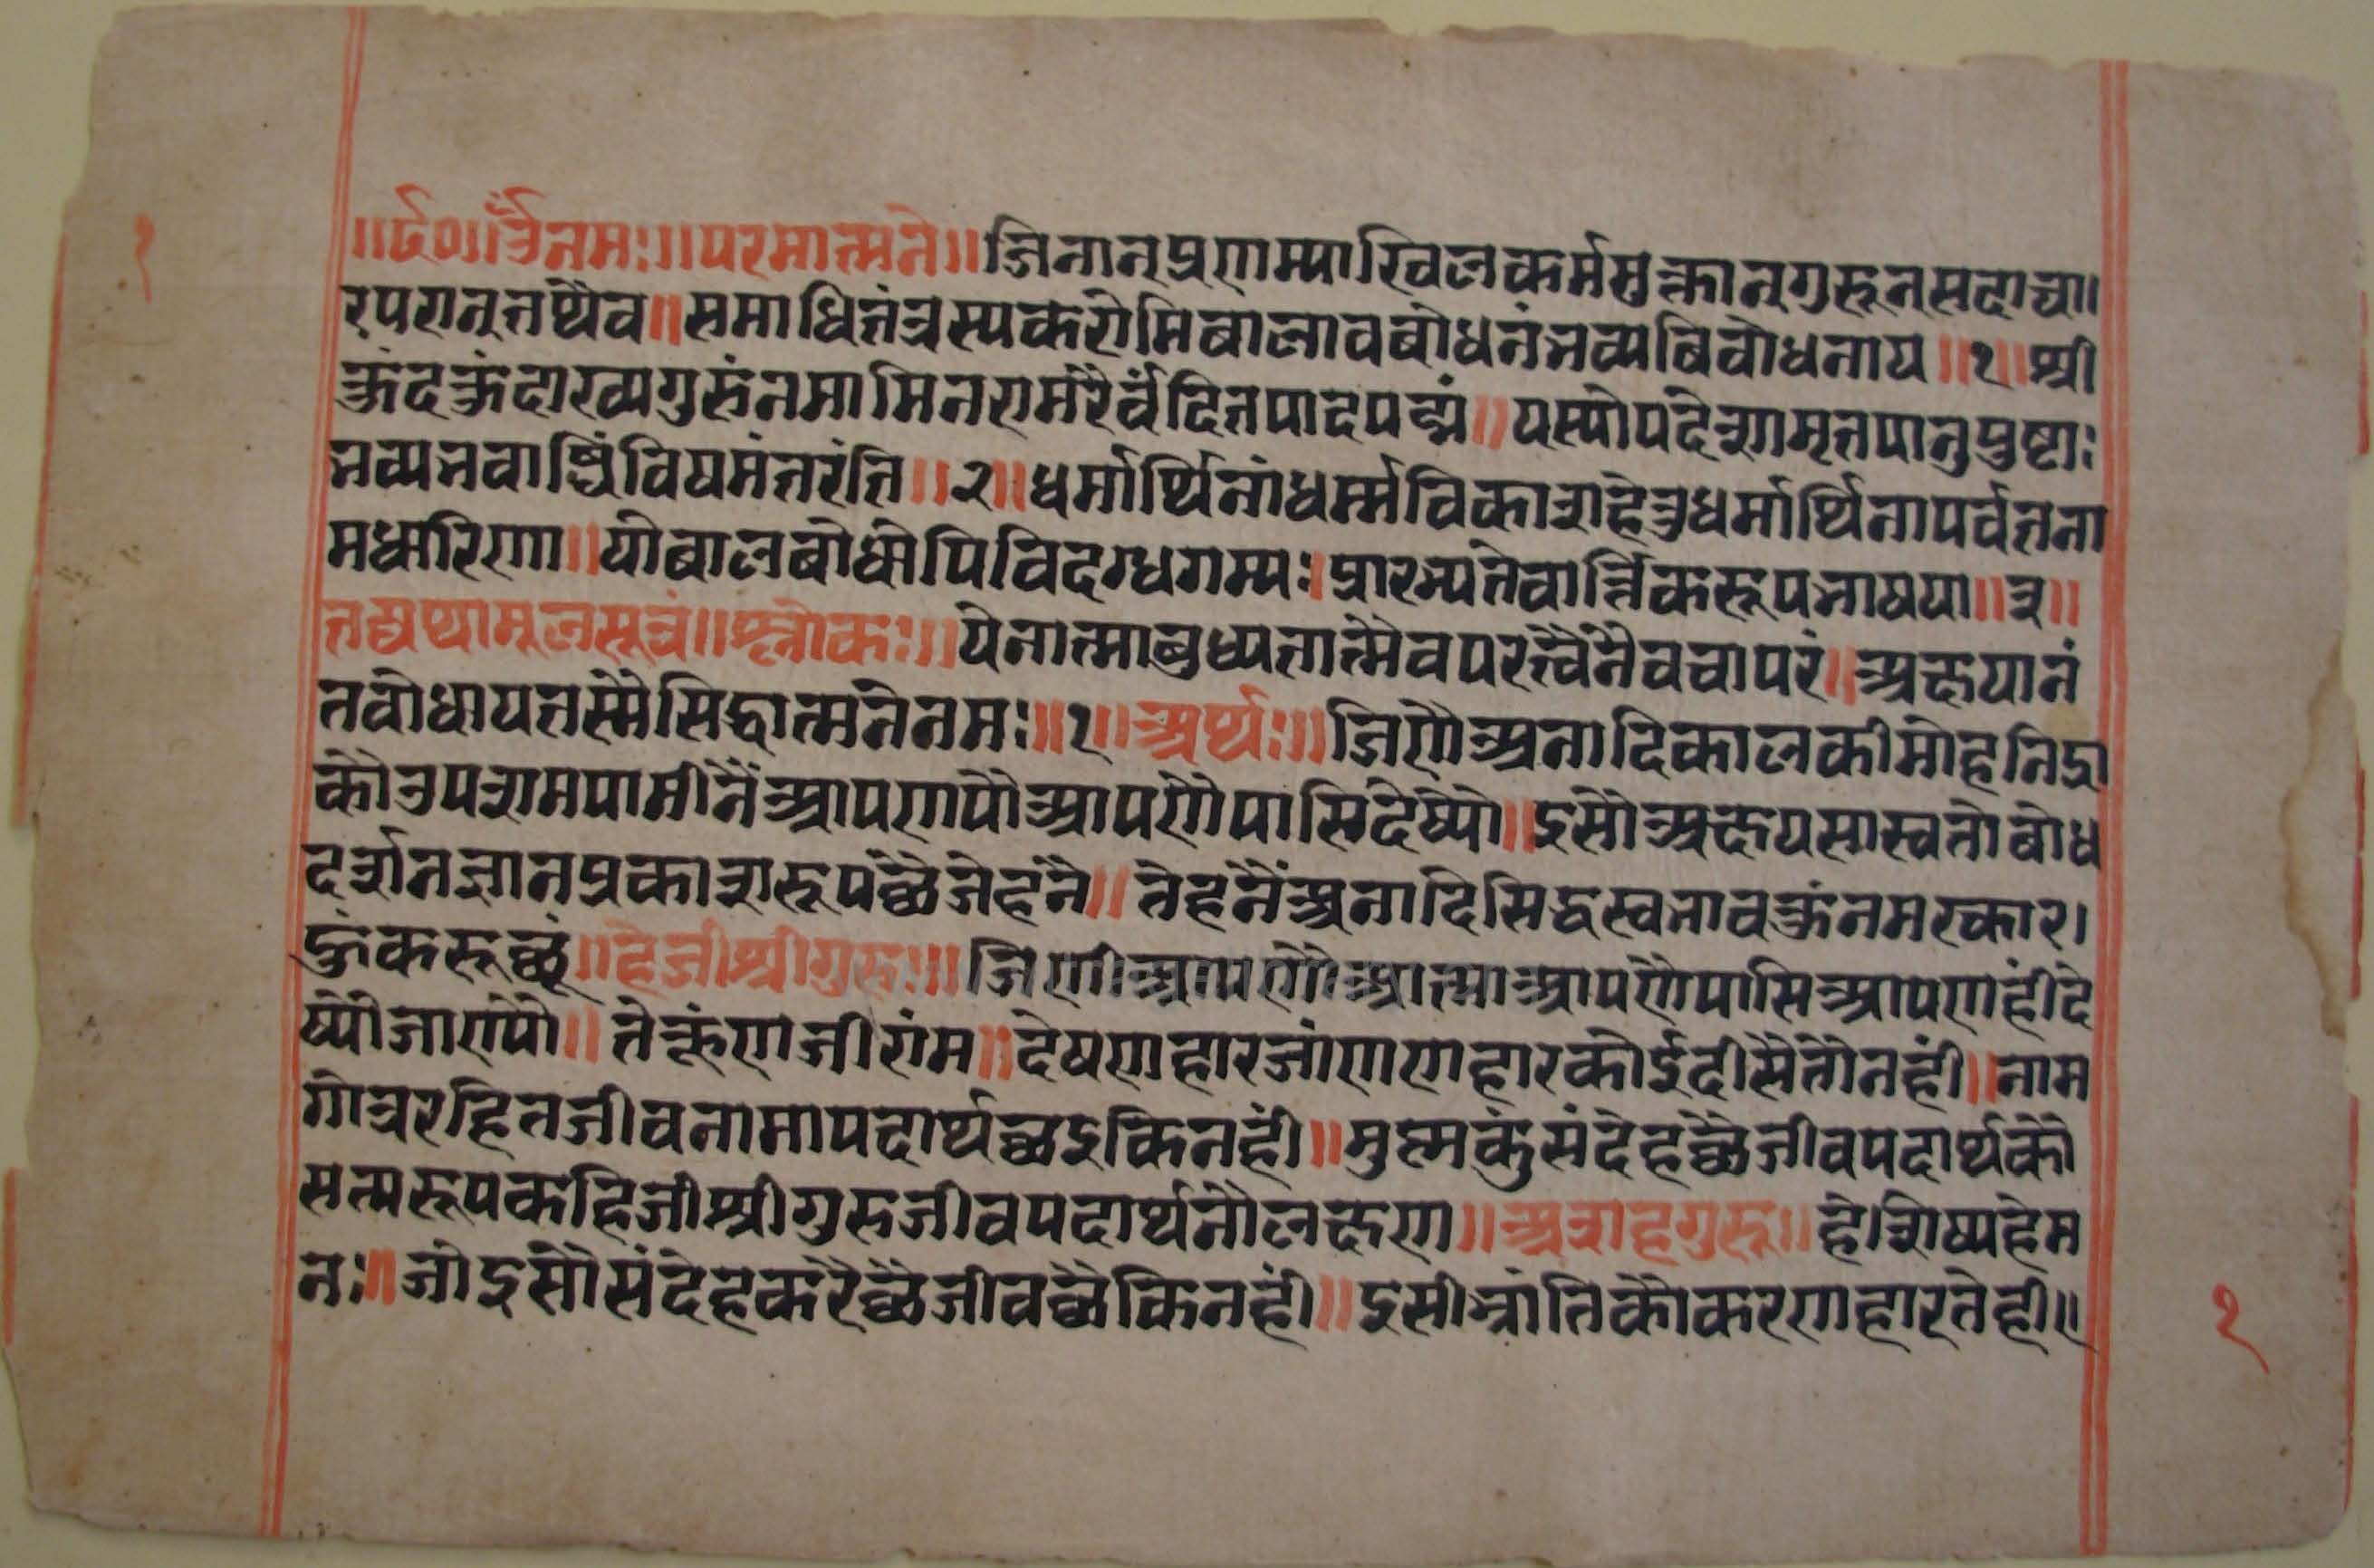 १
॥र्द०॥ ॐ नमः॥ परमात्मने॥ जिनान् प्रणम्याखिलकर्ममुक्तान् गुरून् सदाचा।
र्परान् तथैव॥ समाधितंत्रस्य करोमि बालावबोधनं भव्यबिबोधनाय॥१॥ श्री
कुंदकुंदाख्यगुरुं नमामि नरामरैर्वंदितपादपद्मं॥ यस्योपदेशामृतपानुपुष्टाः
भव्यभवाब्धिं विषमं तरंति॥२॥ धर्मार्थिनां धर्म्मविकाशहेतु धर्मार्थिना पर्वतना
मधारिणा॥ यो बालबोधोपि विदग्धगम्यः। प्रारभ्यते वार्त्तिकरूपभाषया॥३॥
तद्यथा मूलसूत्रं॥ श्लोकः॥ येनात्माबुध्यतात्मैव परत्वैनैव चापरं॥ अक्षयानं
तबोधाय तस्मै सिद्धात्मने नमः॥१॥ अर्थः॥ जिणै अनादिकालकी मोहनिद्रा
कौ उपशम पामीनैं आपणपौ आपणैपासि देष्यो॥ इसो अक्षय सास्वतो बोध
दर्शन ज्ञान प्रकाशरूप छै जेहनै॥ तेहनैं अनादिसिद्धस्वभावकुं नमस्कार।
हुं करू छूं॥ हे जी श्रीगुरु॥ जिणी आपणै आत्मा आपणैपासि आपणाहीं दे
ष्यो जाण्यौ॥ ते कूंण जी रांम॥ देषणहार जांणणहार कोई दीसै तौ नहीं॥ नाम
गोत्र रहित जीवनामा पदार्थ छइ कि नहीं॥ मुझकुं संदेह छै जीवपदार्थकौ
सत्यरूप कहि जी श्रीगुरु जीवपदार्थनौ लक्षण॥ अशह गुरू॥ हे शिष्य हे म
नः॥ जो इसौ संदेह करै छै जीव छै कि नहीं॥ इसी भ्रांतिकौ करणहार् तेही॥
१